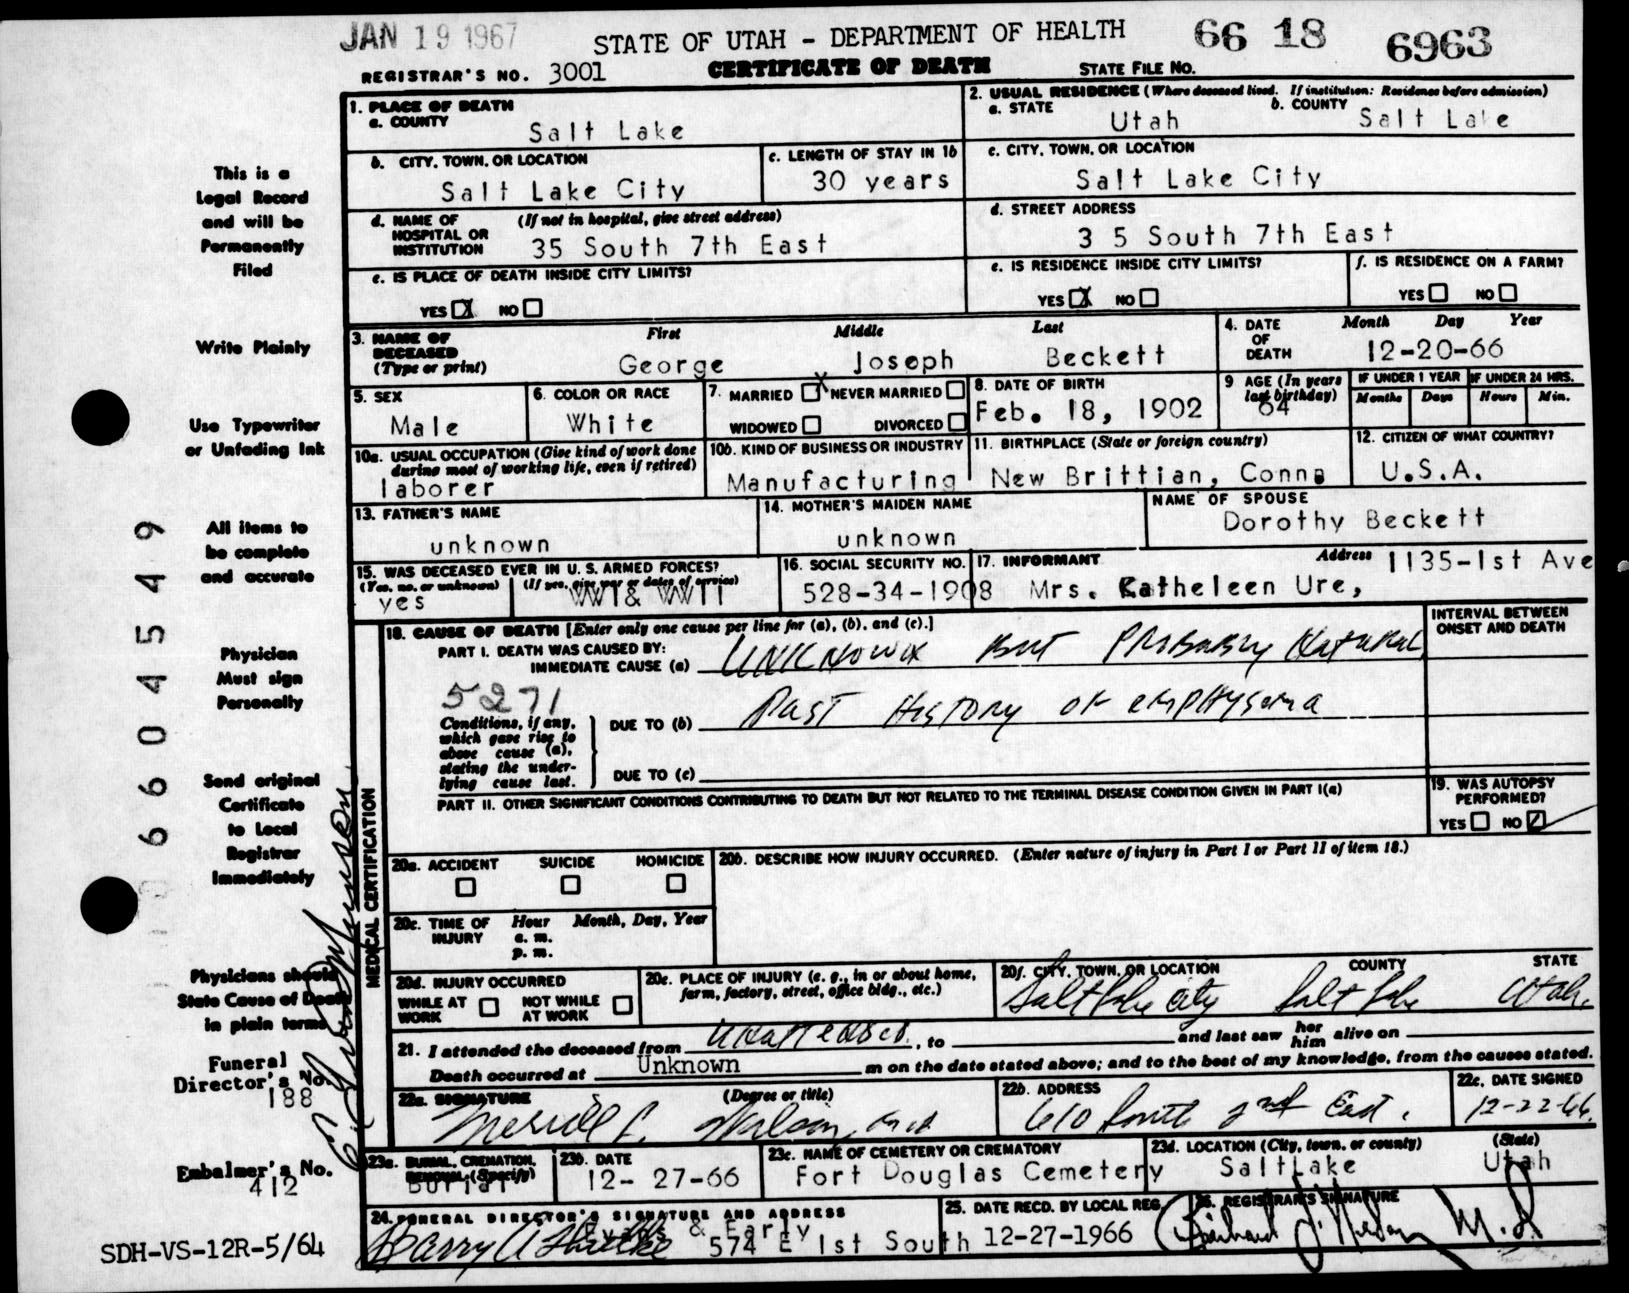 JAN 19 1967
STATE OF UTAH - DEPARTMENT OF HEALTH
66 18 6963
REGISTRAR'S NO. 3001
CERTIFICATE OF DEATH
STATE FILE NO.
1. PLACE OF DEATH
a. COUNTY
Salt Lake
2. USUAL RESIDENCE (Where deceased lived. If institution: Residence before admission)
a. STATE
Utah
b. COUNTY
Salt Lake
b. CITY, TOWN, OR LOCATION
Salt Lake City
c. LENGTH OF STAY IN 1b
30 years
c. CITY, TOWN, OR LOCATION
Salt Lake City
d. NAME OF HOSPITAL OR INSTITUTION
(If not in hospital, give street address)
35 South 7th East
d. STREET ADDRESS
3 5 South 7th East
e. IS PLACE OF DEATH INSIDE CITY LIMITS?
YES X NO
e. IS RESIDENCE INSIDE CITY LIMITS?
YES X NO
f. IS RESIDENCE ON A FARM?
YES NO
3. NAME OF DECEASED
(Type or print)
First Middle Last
George Joseph Beckett
4. DATE OF DEATH
Month Day Year
12-20-66
5. SEX
Male
6. COLOR OR RACE
White
7. MARRIED X NEVER MARRIED
WIDOWED DIVORCED
8. DATE OF BIRTH
Feb. 18, 1902
9 AGE (In years last birthday)
64
IF UNDER 1 YEAR
Months Days
IF UNDER 24 HRS.
Hours Min.
10a. USUAL OCCUPATION (Give kind of work done during most of working life, even if retired)
laborer
10b. KIND OF BUSINESS OR INDUSTRY
Manufacturing
11. BIRTHPLACE (State or foreign country)
New Brittian, Conn.
12. CITIZEN OF WHAT COUNTRY?
U.S.A.
13. FATHER'S NAME
unknown
14. MOTHER'S MAIDEN NAME
unknown
NAME OF SPOUSE
Dorothy Beckett
15. WAS DECEASED EVER IN U. S. ARMED FORCES?
(Yes, no, or unknown)
yes
(If yes, give war or dates of service)
WWI & WWII
16. SOCIAL SECURITY NO.
528-34-1908
17. INFORMANT
Mrs. Katheleen Ure,
Address 1135-1st Ave
18. CAUSE OF DEATH [Enter only one cause per line for (a), (b), and (c).]
INTERVAL BETWEEN ONSET AND DEATH
PART I. DEATH WAS CAUSED BY:
IMMEDIATE CAUSE (a) UNKNOWN BUT PROBABLY NATURAL
5271
Conditions, if any, which gave rise to above cause (a), stating the underlying cause last.
DUE TO (b) PAST HISTORY OF EMPHYSEMA
DUE TO (c)
PART II. OTHER SIGNIFICANT CONDITIONS CONTRIBUTING TO DEATH BUT NOT RELATED TO THE TERMINAL DISEASE CONDITION GIVEN IN PART I(a)
19. WAS AUTOPSY PERFORMED?
YES NO
MEDICAL CERTIFICATION
20a. ACCIDENT SUICIDE HOMICIDE
20b. DESCRIBE HOW INJURY OCCURRED. (Enter nature of injury in Part I or Part II of item 18.)
20c. TIME OF INJURY
Hour Month, Day, Year
a. m.
p. m.
20d. INJURY OCCURRED
WHILE AT WORK NOT WHILE AT WORK
20e. PLACE OF INJURY (e. g., in or about home, farm, factory, street, office bldg., etc.)
20f. CITY, TOWN, OR LOCATION COUNTY STATE
Salt Lake City Salt Lake Utah
21. I attended the deceased from Unattended, to and last saw her him alive on
Death occurred at Unknown m on the date stated above; and to the best of my knowledge, from the causes stated.
22a. SIGNATURE (Degree or title)
Merrill L. Wilson, M.D.
22b. ADDRESS
610 South 2nd East.
22c. DATE SIGNED
12-22-66.
23a. BURIAL, CREMATION, REMOVAL (Specify)
Burial
23b. DATE
12- 27-66
23c. NAME OF CEMETERY OR CREMATORY
Fort Douglas Cemetery
23d. LOCATION (City, town, or county) (State)
SaltLake Utah
24. FUNERAL DIRECTOR'S SIGNATURE AND ADDRESS
Evans & Early
Harry A
574 E 1st South
25. DATE RECD. BY LOCAL REG.
12-27-1966
26. REGISTRAR'S SIGNATURE
M.D.
This is a
Legal Record
and will be
Permanently
Filed
Write Plainly
Use Typewriter
or Unfading Ink
All items to
be complete
and accurate
Physician
Must sign
Personally
Send original
Certificate
to Local
Registrar
Immediately
Physicians should
State Cause of Death
in plain terms
Funeral
Director's No.
188
Embalmer's No.
412
6604549
SDH-VS-12R-5/64